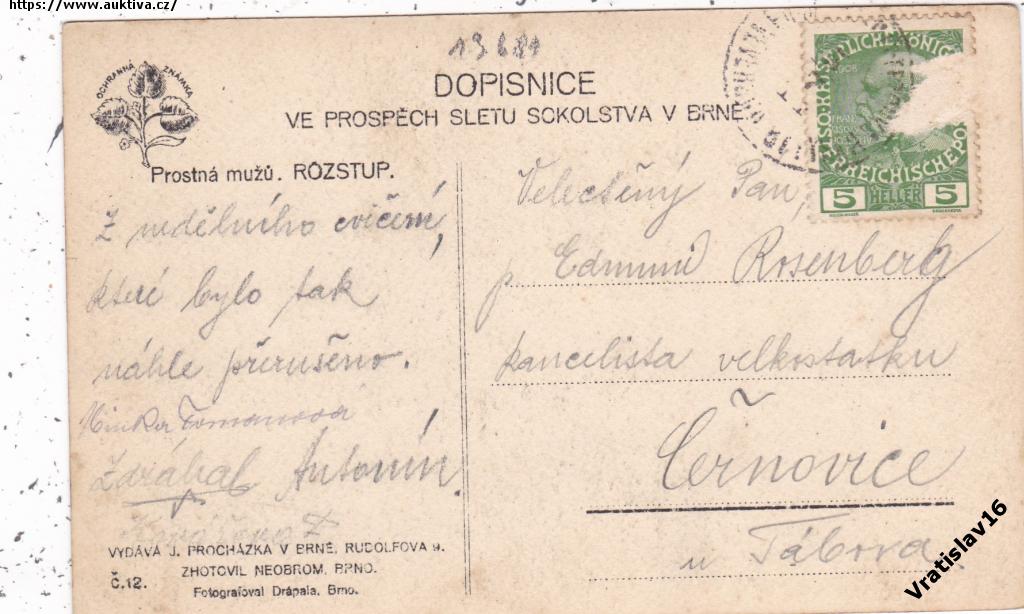 https://www.auktiva.cz/
19681
OCHRANNÁ ZNÁMKA
DOPISNICE
VE PROSPĚCH SLETU SOKOLSTVA V BRNĚ.
Prostná mužů. ROZSTUP.
Z nedělního cvičení,
které bylo tak
náhle přerušeno.
Minka Tomanova
Zdráhal Antonín.
VYDÁVÁ J. PROCHÁZKA V BRNĚ, RUDOLFOVA 9.
ZHOTOVIL NEOBROM, BRNO.
Č. 12.
Fotografoval Drápala, Brno.
5 HELLER 5
Velectěný Pan,
p. Edmund Rosenberg
kancelista velkostatku
Černovice
u Tábora
Vratislav16